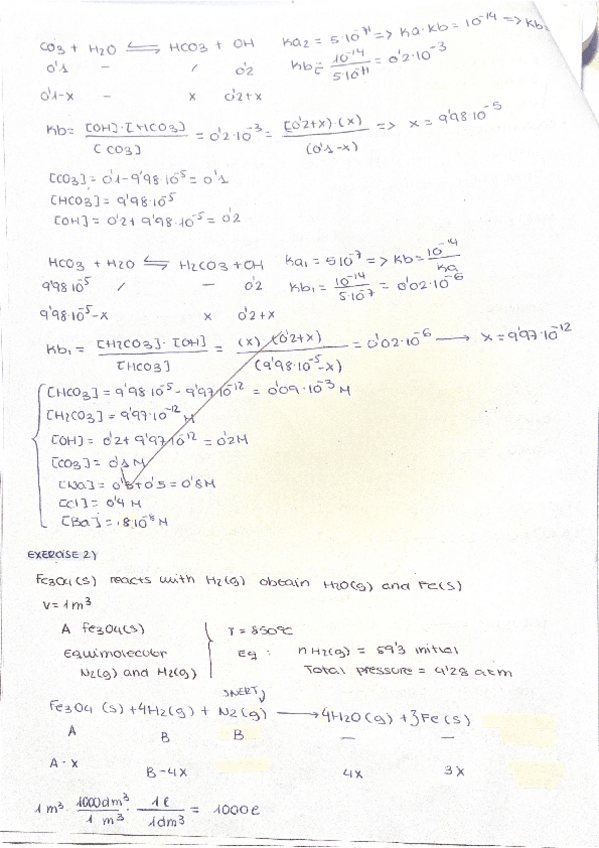 CO3 + H2O ⇌ HCO3 + OH   Ka2 = 5·10^-11 => Ka·Kb = 10^-14 => Kb=
0'1   -   /   0'2   Kb = 10^-14 / 5·10^-11 = 0'2·10^-3
0'1-x   -   x   0'2+x
Kb = [OH]·[HCO3] / [CO3] = 0'2·10^-3 = (0'2+x)·(x) / (0'1-x) => x = 9'98·10^-5
[CO3] = 0'1-9'98·10^-5 = 0'1
[HCO3] = 9'98·10^-5
[OH] = 0'2+ 9'98·10^-5 = 0'2
HCO3 + H2O ⇌ H2CO3 + OH   Ka1 = 5·10^-7 => Kb = 10^-14 / Ka
9'98·10^-5   /   -   0'2   Kb1 = 10^-14 / 5·10^-7 = 0'02·10^-6
9'98·10^-5-x   x   0'2+x
Kb1 = [H2CO3]·[OH] / [HCO3] = (x)·(0'2+x) / (9'98·10^-5-x) = 0'02·10^-6 → x = 9'97·10^-12
[HCO3] = 9'98·10^-5 - 9'97·10^-12 = 0'09·10^-3 M
[H2CO3] = 9'97·10^-12 M
[OH] = 0'2+ 9'97·10^-12 = 0'2M
[CO3] = 0'1M
[Na] = 0'3+0'5 = 0'8M
[Cl] = 0'4 M
[Ba] = 8·10^-8 M
EXERCISE 2)
Fe3O4(s) reacts with H2(g) obtain H2O(g) and Fe(s)
V=1m^3
A Fe3O4(s)   T = 850ºC
Equimolecular   Eq: nH2(g) = 59'3 initial
N2(g) and H2(g)   Total pressure = 4'28 atm
INERT
Fe3O4 (s) + 4H2(g) + N2(g) → 4H2O(g) + 3Fe(s)
A   B   B   -   -
A-x   B-4x   4x   3x
1m^3 · 1000dm^3 / 1 m^3 · 1ℓ / 1dm^3 = 1000ℓ